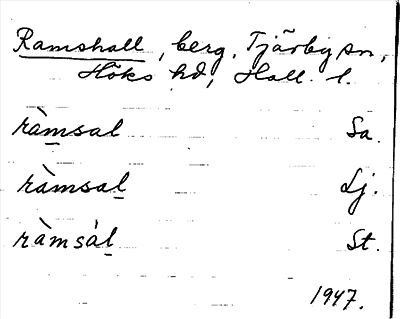 Ramshall, berg, Tjärby sn,
Höks hd, Hall. l.
ràmsal Sa.
ràmsal Lj.
ràmsàl St.
1947.